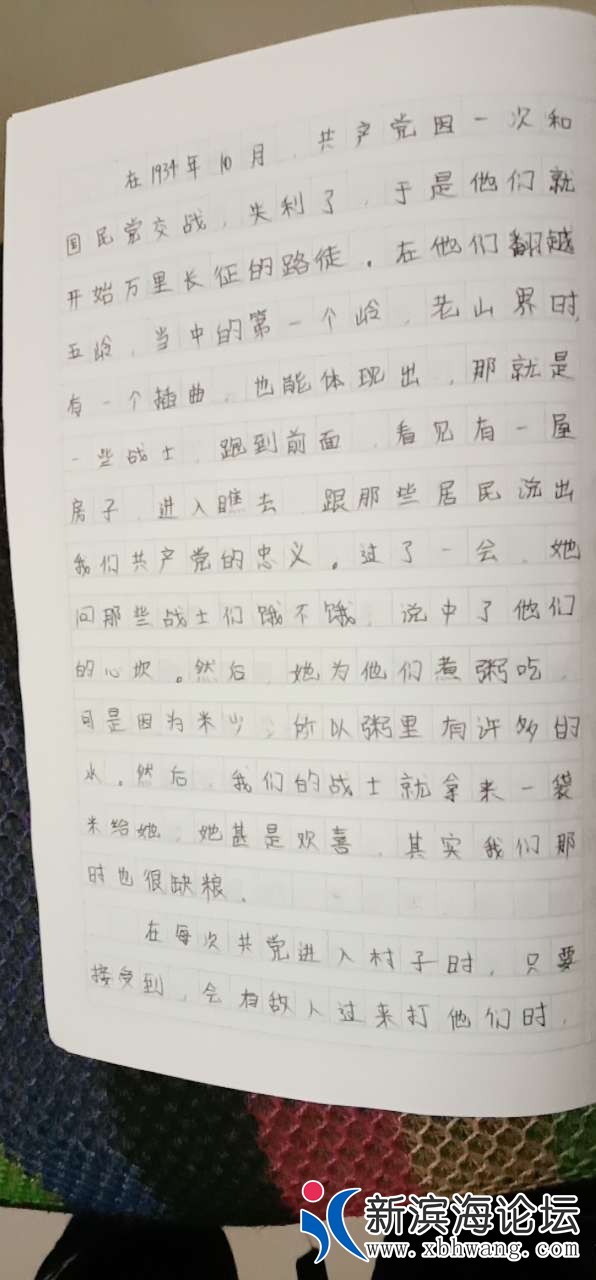 在1934年10月，共产党因一次和
国民党交战，失利了，于是他们就
开始万里长征的路徒。在他们翻越
五岭，当中的第一个岭，老山界时，
有一个插曲，也能体现出，那就是
一些战士，跑到前面，看见有一屋
房子，进入瞧去，跟那些居民说出
我们共产党的忠义。过了一会，她
问那些战士们饿不饿，说中了他们
的心坎。然后，她为他们煮粥吃，
可是因为米少，所以粥里有许多的
水。然后，我们的战士就拿来一袋
米给她，她甚是欢喜，其实我们那
时也很缺粮。
在每次共党进入村子时，只要
接受到，会有敌人过来打他们时，
新滨海论坛
www.xbhwang.com